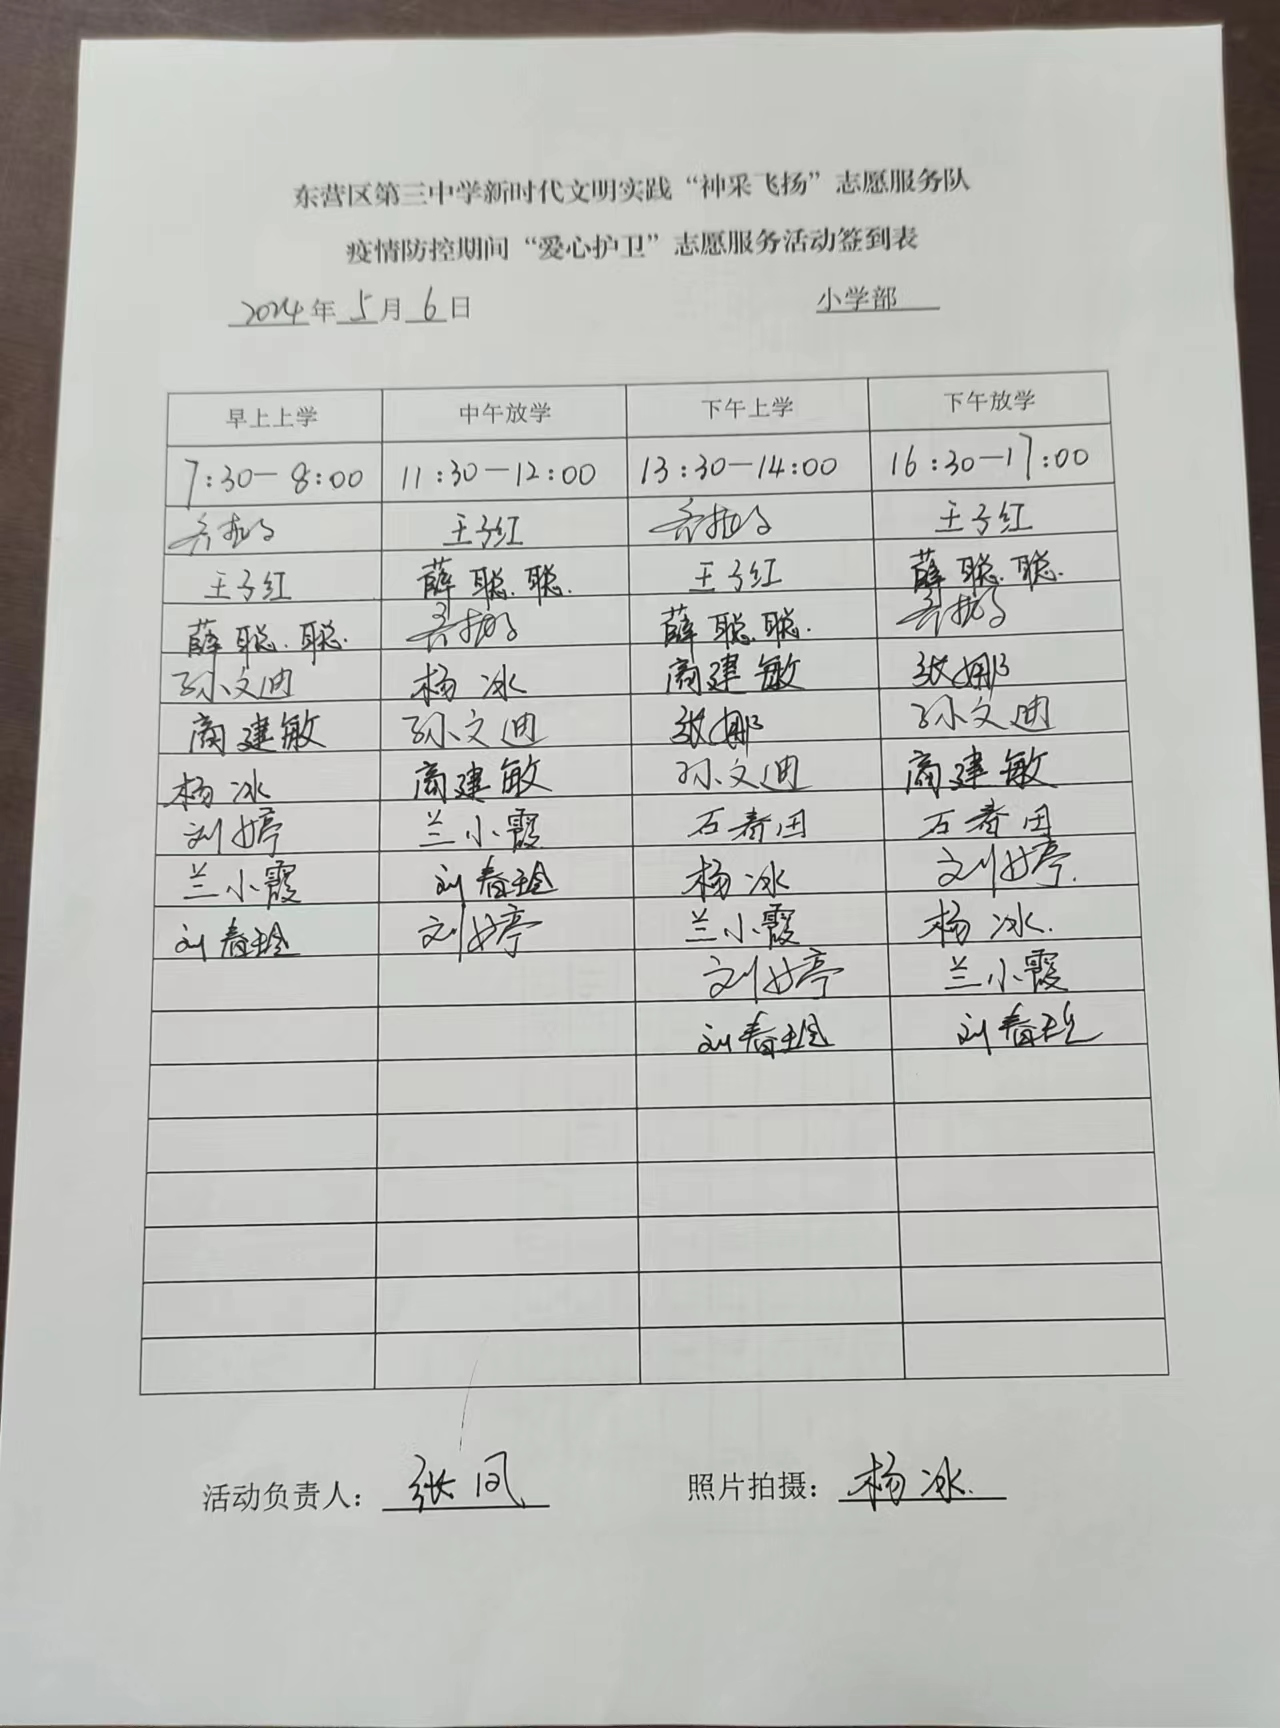 东营区第三中学新时代文明实践“神采飞扬”志愿服务队
疫情防控期间“爱心护卫”志愿服务活动签到表
2024年5月6日 小学部
早上上学 中午放学 下午上学 下午放学
7:30-8:00 11:30-12:00 13:30-14:00 16:30-17:00
王子红 王子红
王子红 薛聪聪 王子红 薛聪聪
薛聪聪 薛聪聪
孙文迪 杨冰 商建敏 张娜
商建敏 孙文迪 张娜 孙文迪
杨冰 商建敏 孙文迪 商建敏
刘婷 兰小霞 石春田 石春田
兰小霞 刘春玲 杨冰 刘婷
刘春玲 刘婷 兰小霞 杨冰
刘婷 兰小霞
刘春玲 刘春玲
活动负责人：张凤 照片拍摄：杨冰